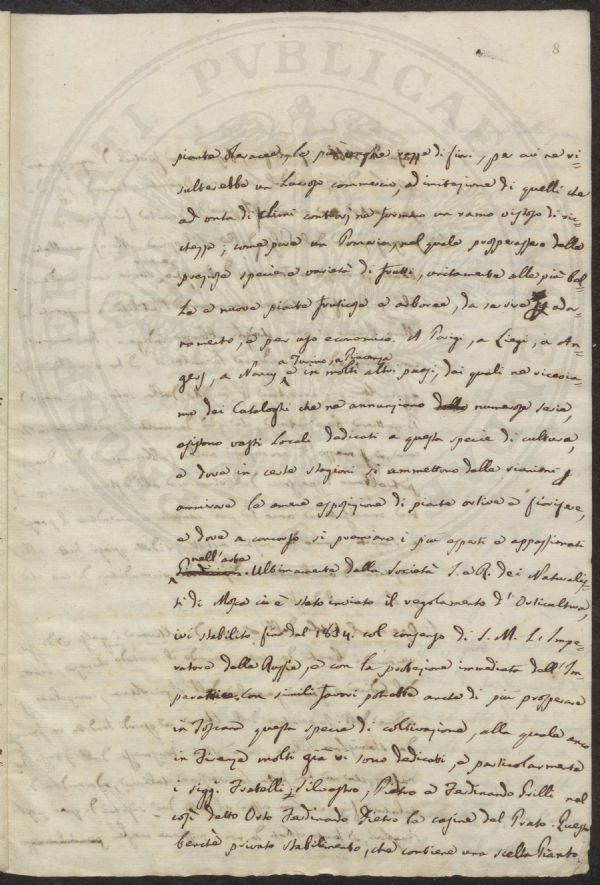 8
piante erbacee, le più vaghe razze di fiori, per cui ne ri=
sulterebbe un lucroso commercio, ad imitazione di quelli che
ad onta di climi contrarj ne formano un ramo vistoso di ric=
chezza; come pure un Pomario, nel quale prosperassero delle
preziose specie e varietà di frutti, unitamente alle più bel=
le e nuove piante fruticose e arboree, da servire ador=
namento, e per uso economico. A Parigi, a Liegi, a An=
gers, a Nancy, a Torino, a Piacenza e in molti altri paesi, dai quali ne ricevia=
mo dei Cataloghi che ne annunziano numerose serie,
esistono vasti Locali dedicati a questa specie di cultura,
e dove in certe stagioni si ammettono delle riunioni p
ammirare le amene esposizione di piante ortive e fiorifere,
e dove a concorso si premiano i più esperti e appassionati
nell'arte. Ultimamente dalla Società I. e R. dei Naturalis=
ti di Mosca ci è stato inviato il regolamento d'Orticultura,
ivi stabilito fino dal 1834. col consenso di S. M. L'Impe=
ratore della Russia, e con la protezione immediata dell'Im
peratrice. Con simili favori potrebbe anche di più prosperare
in Toscana questa specie di coltivazione, alla quale anco
in Firenze molti già vi sono dedicati, e particolarmente
i sigg. Fratelli Silvestro, Pietro e Ferdinando Grilli nel
così detto Orto Ferdinando dietro le cascine del Prato. Questo
benchè privato stabilimento, che contiene una scelta Piante,